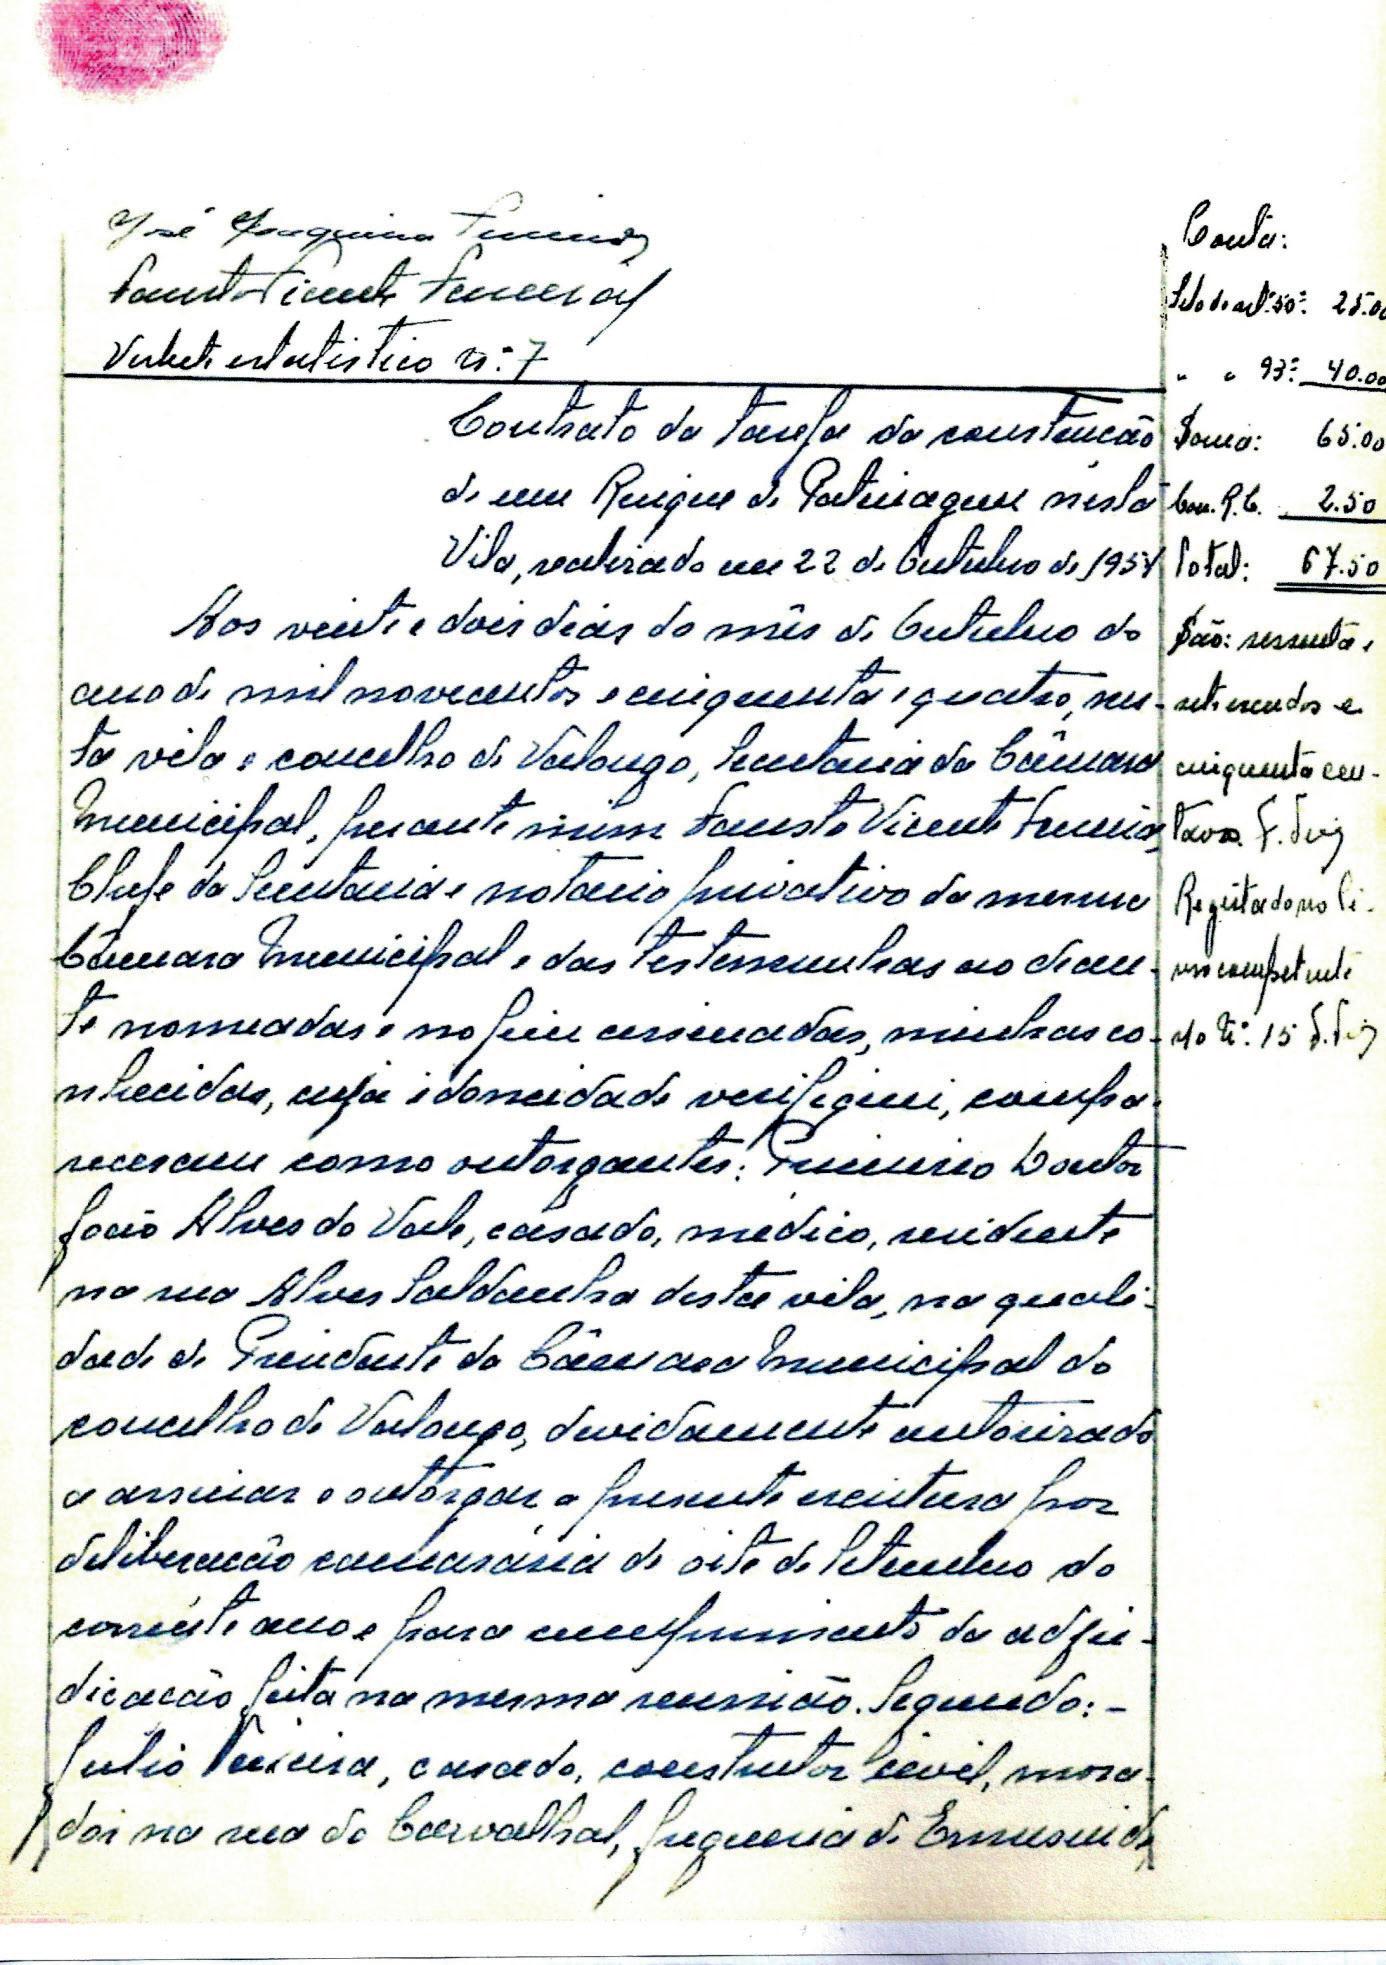 José Joaquim Ferreira
Fausto Vicente Ferreira
Verbete estatistico n.º 7
Contrato da tarefa da construção
de um Ringue de Patinagem nesta
Vila, realizado em 22 de Outubro de 1954
Aos vinte e dois dias do mês de Outubro do
ano de mil novecentos e cinquenta e quatro, nes-
ta vila e concelho de Valongo, Secretaria da Câmara
Municipal, perante mim Fausto Vicente Ferreira,
Chefe da Secretaria e notario privativo da mesma
Câmara Municipal e das testemunhas ao dian-
te nomeadas e no fim assinadas, minhas co-
nhecidas, cuja idoneidade verifiquei, compa-
receram como outorgantes: Primeiro Doutor
João Alves do Vale, casado, médico, residente
na rua Alves Saldanha desta vila, na quali-
dade de Presidente da Câmara Municipal do
concelho de Valongo, devidamente autorizado
a assinar e outorgar a presente escritura por
deliberação camarária de oito de Setembro do
corrente ano e para cumprimento da adju-
dicação feita na mesma reunião. Segundo: -
Julio Pereira, casado, construtor civil, mora-
dor na rua do Carvalhal, freguesia de Ermesinde
Conta:
Selo do art.º 50.º 25.00
" " 93.º 40.00
Soma: 65.00
2.50
Total: 67.50
São: sessenta e
sete escudos e
cinquenta cen-
tavos.
Registado no li-
vro competente
sob o n.º 15